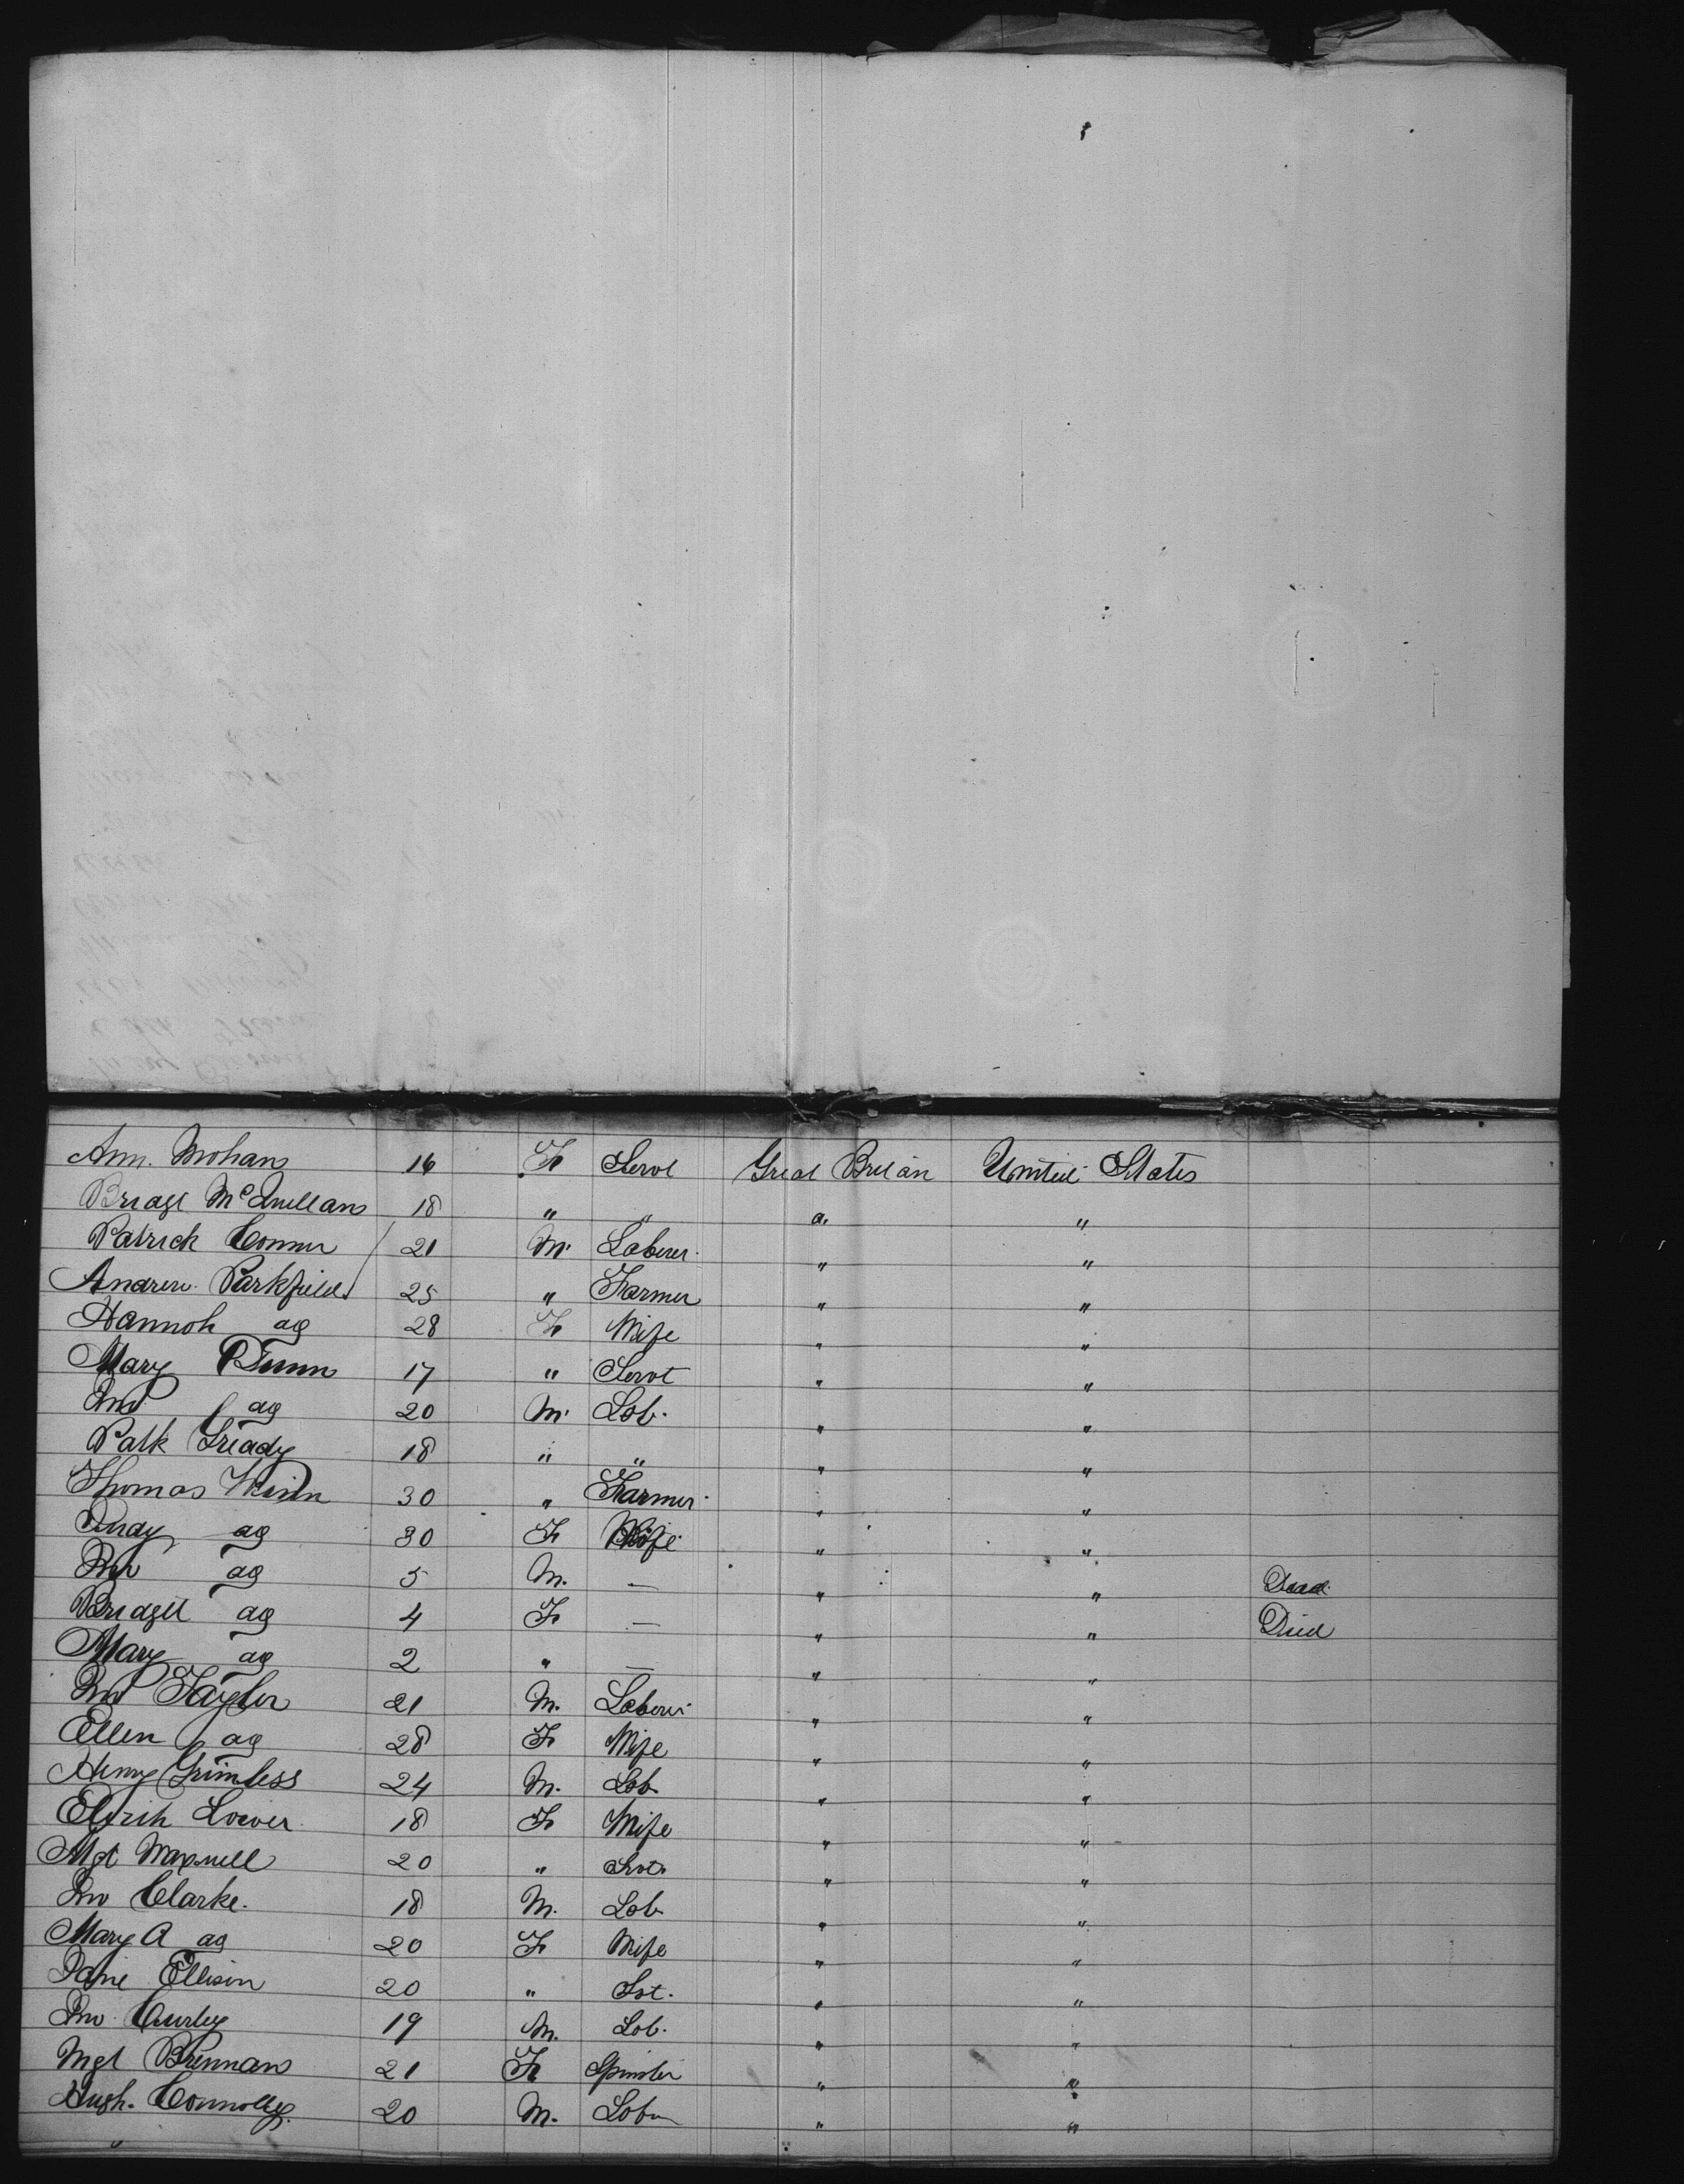 Ann. Mohan 16 F. Servt Great Britan United States
Bridgt McQuillan 18 " " " "
Patrick Connor 21 M. Laberer. " "
Andrew Parkfield 25 " Farmer " "
Hannah do 28 F. Wife " "
Mary Dunn 17 " Servt " "
Jno do 20 M. Lab. " "
Patk Gready 18 " " " "
Thomas 30 " Farmer. " "
Judy do 30 F. Wife " "
Jno do 5 M. — " " Dead
Bridgt do 4 F. — " " Died
Mary do 2 " — " "
Jno Taylor 21 M. Laberer " "
Ellen do 28 F. Wife " "
Henry Grimless 24 M. Lab. " "
Lower 18 F. Wife " "
Mgt Maxwell 20 " Srvt. " "
Jno Clarke. 18 M. Lab " "
Mary A do 20 F. Wife " "
Jane Ellison 20 " Svt. " "
Jno Curley 19 M. Lab. " "
Mgt Brennan 21 F. Spinster " "
Hugh. Connolly. 20 M. Labr " "